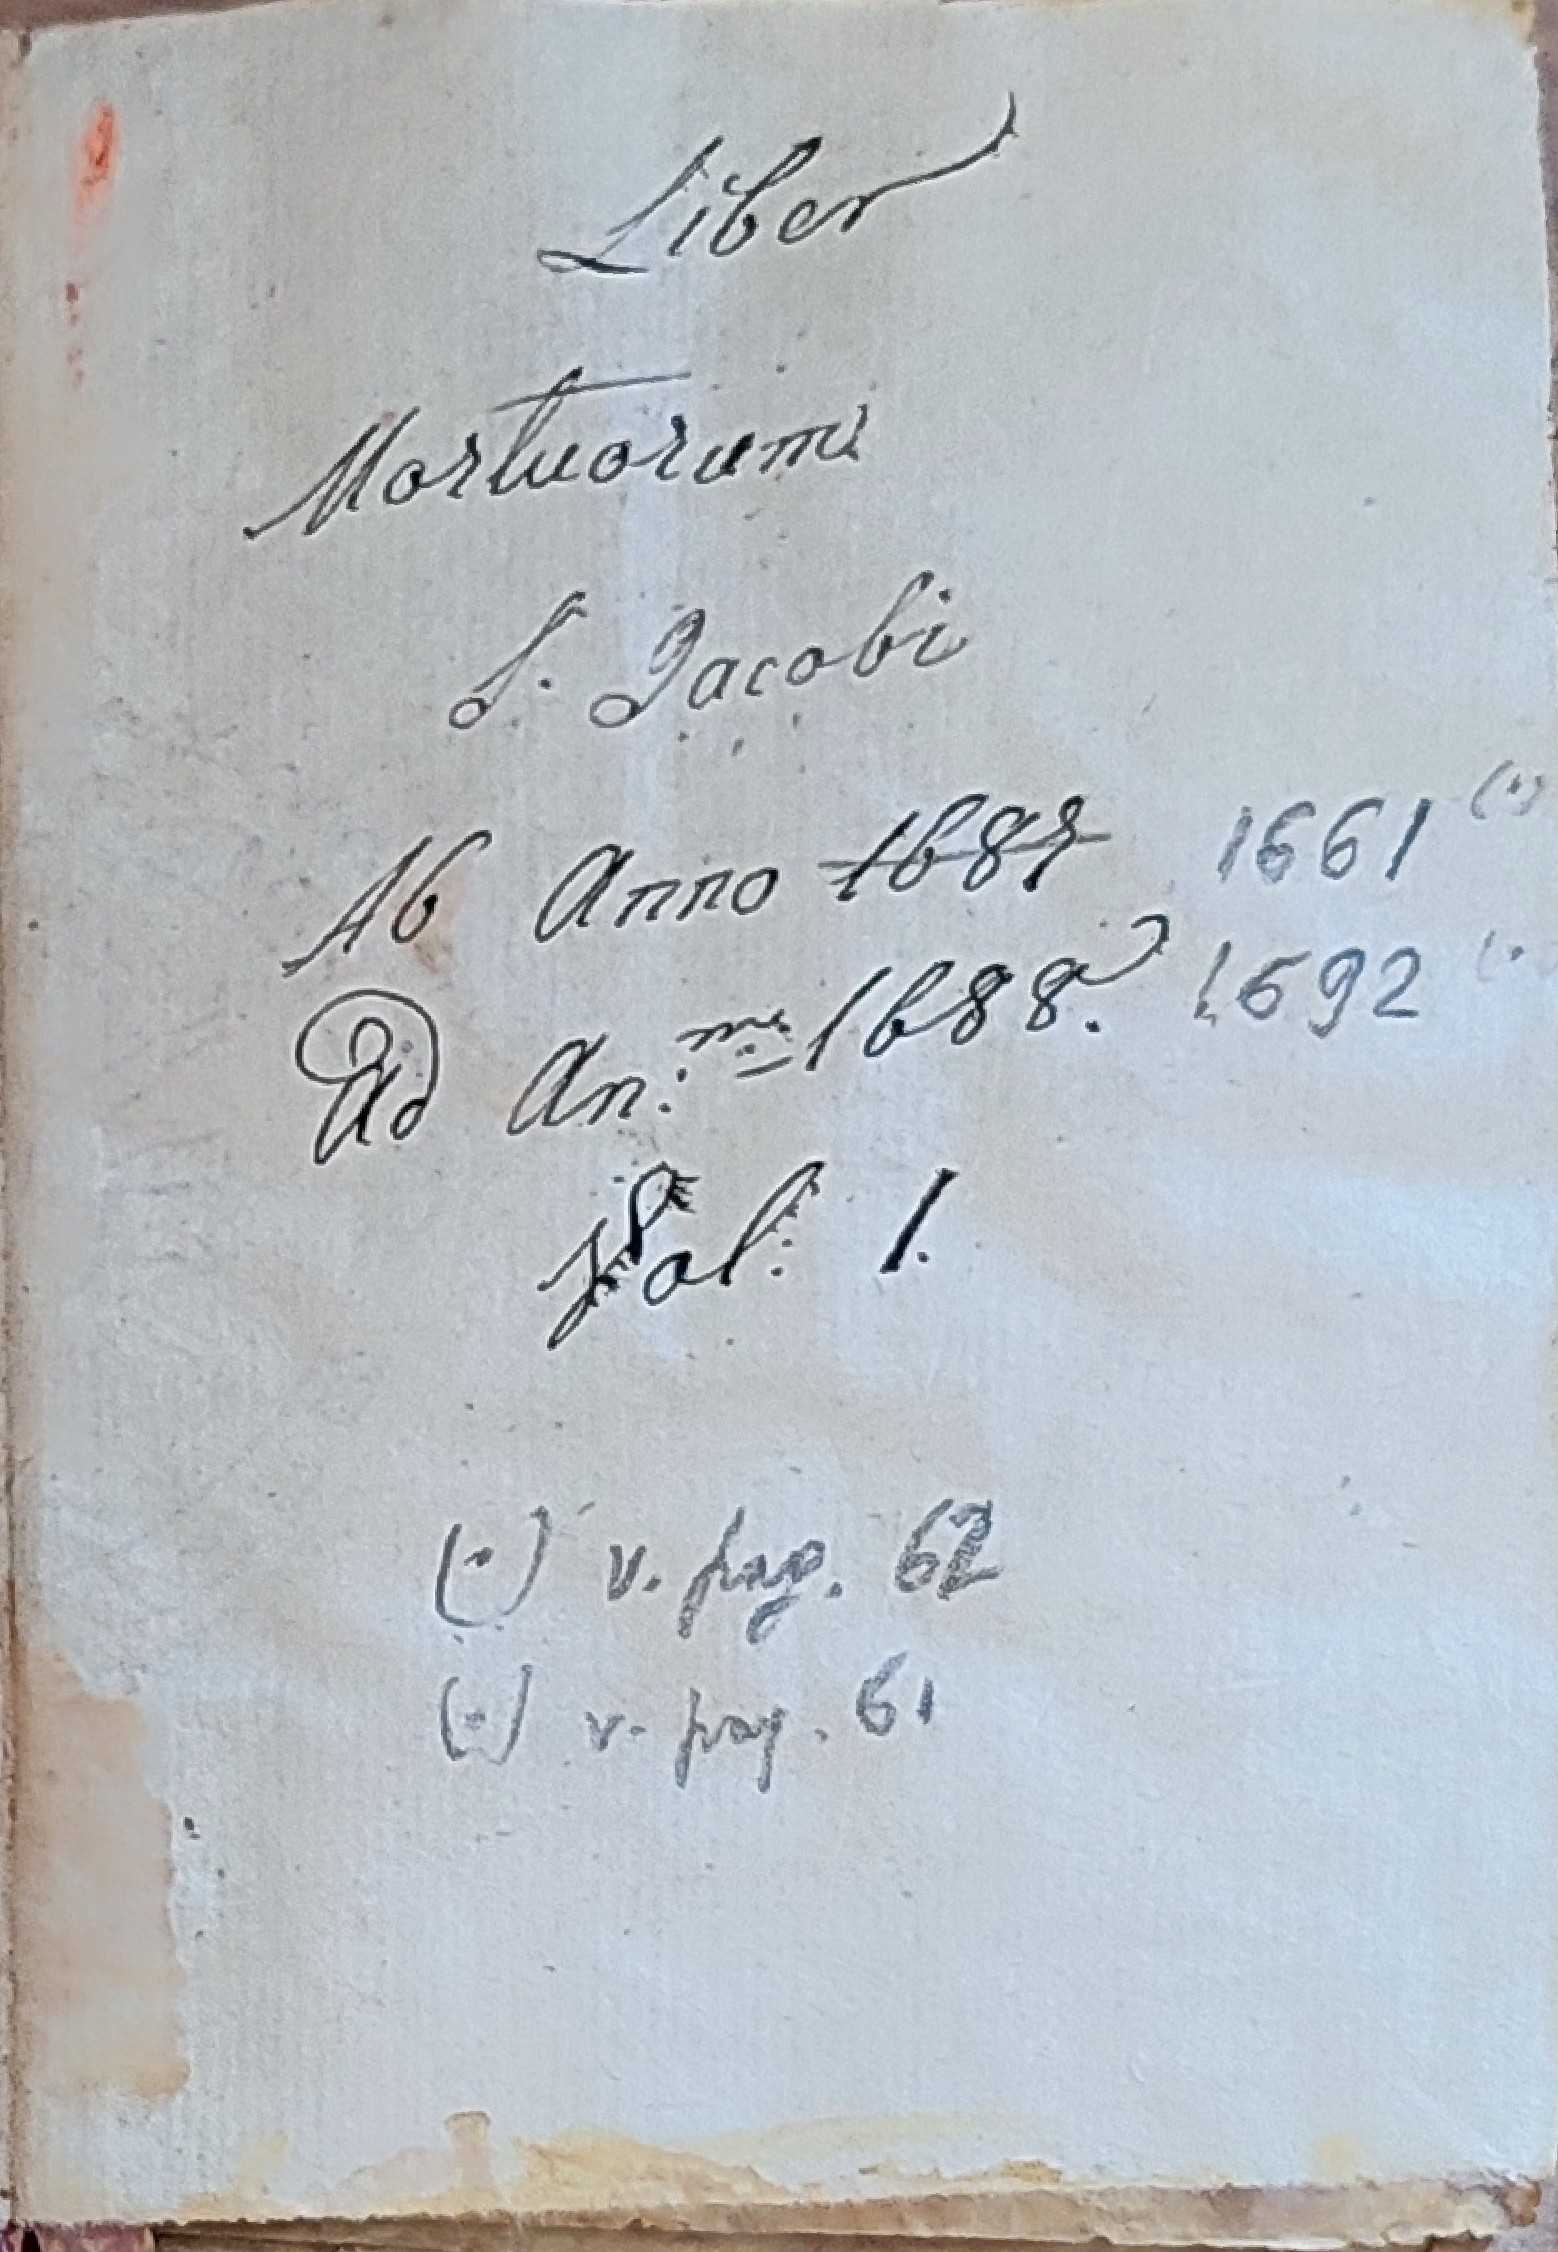 Liber
Mortuorum
S. Jacobi
Ab Anno 1687 1661 (•)
Ad An:m: 1688. 1692 (•
Fol: 1.
(•) v. pag. 62
(•) v. pag. 61